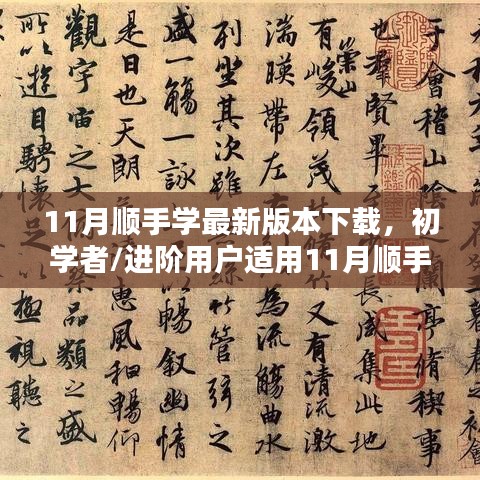 于會稽山 蘭亭脩禊事
也羣賢畢 長咸集此地
有崇山峻領茂 又有清流激
湍暎帶左 為流觴曲水
列坐其次雖 竹管弦之
盛一觴一詠 以暢敘幽情
是日也天朗 惠風和暢仰
觀宇宙之大 品類之盛
所以遊目騁懷足 極視聽之
11月顺手学最新版本下载，初
学者/进阶用户适用11月顺手